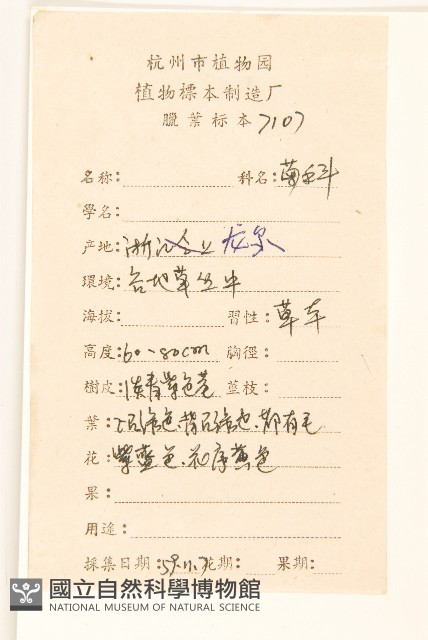 杭州市植物园
植物標本制造厂
臘葉标本7107
名称: 科名:菊科
學名:
产地:浙江 龙泉
環境:各地草丛中
海拔: 習性:草本
高度:60-80cm 胸徑:
樹皮:淡青紫色 莖枝:
葉: 绿色.背 .都有毛
花:紫蓝色.花序黄色
果:
用途:
採集日期:59.11.7 花期: 果期:
國立自然科學博物館
NATIONAL MUSEUM OF NATURAL SCIENCE